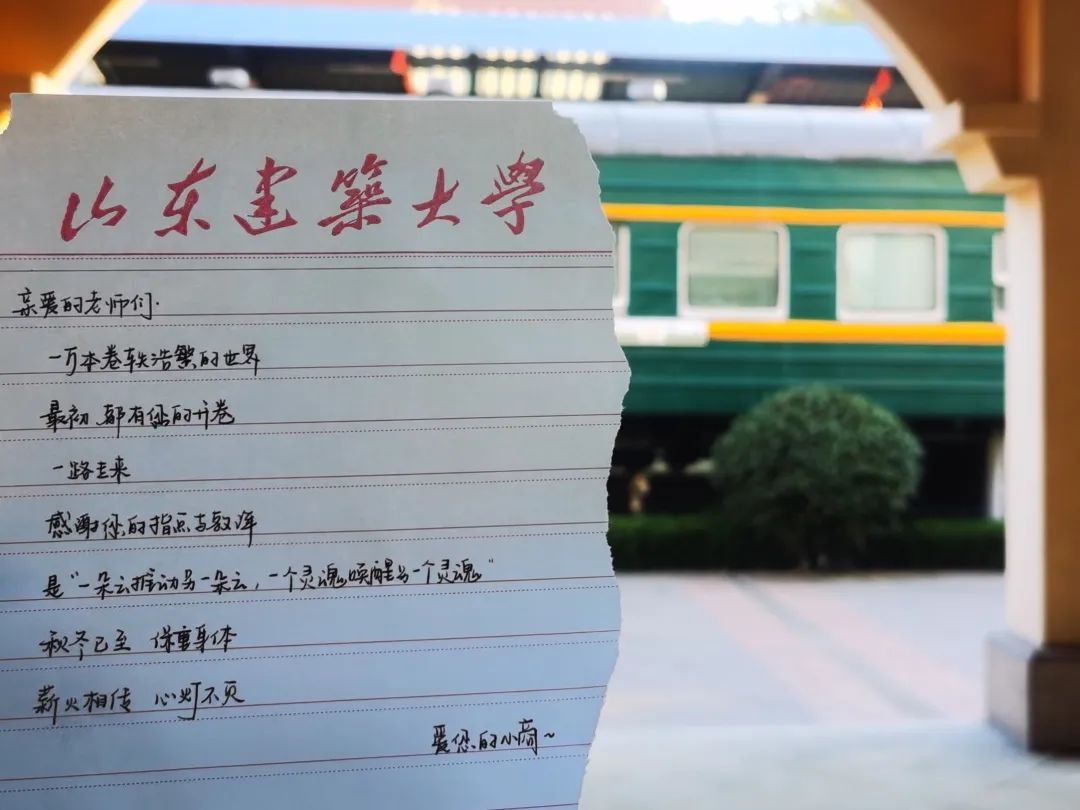 山东建築大學
亲爱的老师们.
一万本卷轶浩繁的世界
最初 都有您的开卷
一路走来
感谢您的指点与教诲
是"一朵云推动另一朵云，一个灵魂唤醒另一个灵魂"
秋冬已至 保重身体
薪火相传 心灯不灭
爱您的小商~